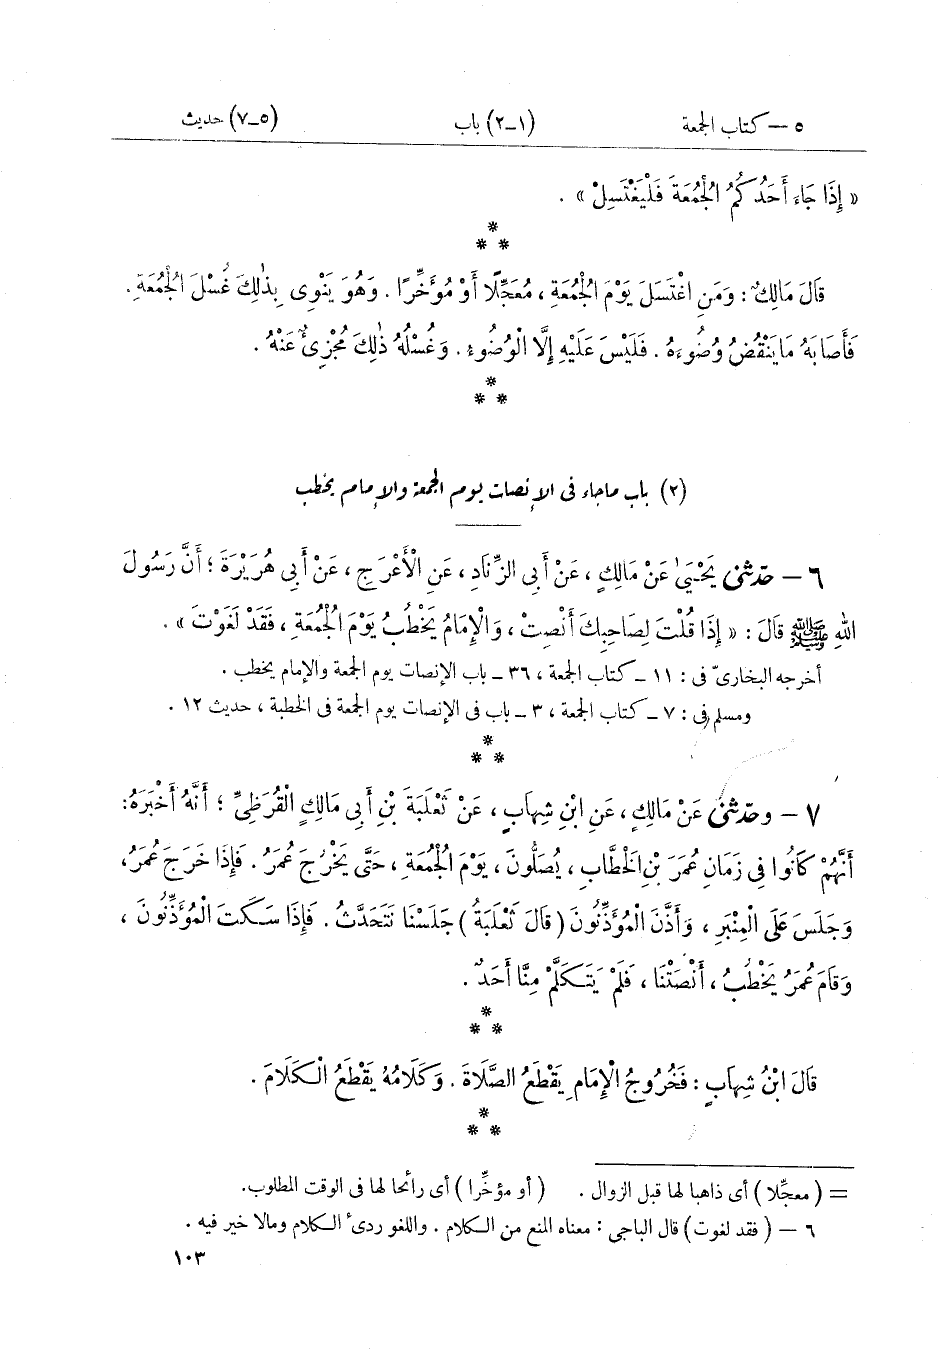 ٥ – كتاب الجمعة (١–٢) باب (٥–٧) حديث
« إِذَا جَاءَ أَحَدُكُمُ الْجُمُعَةَ فَلْيَغْتَسِلْ » .
*
* *
قَالَ مَالِكٌ : وَمَنِ اغْتَسَلَ يَوْمَ الْجُمُعَةِ ، مُعَجِّلًا أَوْ مُؤَخِّرًا . وَهُوَ يَنْوِى بِذٰلِكَ غُسْلَ الْجُمُعَةِ .
فَأَصَابَهُ مَا يَنْقُضُ وُضُوءَهُ . فَلَيْسَ عَلَيْهِ إِلَّا الْوُضُوءُ . وَغُسْلُهُ ذٰلِكَ مُجْزِئٌ عَنْهُ .
*
* *
(٢) باب ماجاء فى الإنصات يوم الجمعة والإمام يخطب
٦ – حدّثنى يَحْيَىٰ عَنْ مَالِكٍ ، عَنْ أَبِى الزِّنَادِ ، عَنِ الْأَعْرَجِ ، عَنْ أَبِى هُرَيْرَةَ ؛ أَنَّ رَسُولَ
اللهِ ﷺ قَالَ : « إِذَا قُلْتَ لِصَاحِبِكَ أَنْصِتْ ، وَالْإِمَامُ يَخْطُبُ يَوْمَ الْجُمُعَةِ ، فَقَدْ لَغَوْتَ » .
أخرجه البخارىّ فى : ١١ – كتاب الجمعة ، ٣٦ – باب الإنصات يوم الجمعة والإمام يخطب .
ومسلم فى : ٧ – كتاب الجمعة ، ٣ – باب فى الإنصات يوم الجمعة فى الخطبة ، حديث ١٢ .
*
* *
٧ – وحدّثنى عَنْ مَالِكٍ ، عَنِ ابْنِ شِهَابٍ ، عَنْ ثَعْلَبَةَ بْنِ أَبِى مَالِكٍ الْقُرَظِىِّ ؛ أَنَّهُ أَخْبَرَهُ :
أَنَّهُمْ كَانُوا فِى زَمَانِ عُمَرَ بْنِ الْخَطَّابِ ، يُصَلُّونَ ، يَوْمَ الْجُمُعَةِ ، حَتَّى يَخْرُجَ عُمَرُ . فَإِذَا خَرَجَ عُمَرُ ،
وَجَلَسَ عَلَى الْمِنْبَرِ ، وَأَذَّنَ الْمُؤَذِّنُونَ ( قَالَ ثَعْلَبَةُ ) جَلَسْنَا نَتَحَدَّثُ . فَإِذَا سَكَتَ الْمُؤَذِّنُونَ ،
وَقَامَ عُمَرُ يَخْطُبُ ، أَنْصَتْنَا ، فَلَمْ يَتَكَلَّمْ مِنَّا أَحَدٌ .
*
* *
قَالَ ابْنُ شِهَابٍ : فَخُرُوجُ الْإِمَامِ يَقْطَعُ الصَّلَاةَ . وَكَلَامُهُ يَقْطَعُ الْكَلَامَ .
*
* *
= ( معجِّلا ) أى ذاهبا لها قبل الزوال . ( أو مؤخِّرا ) أى رائحا لها فى الوقت المطلوب .
٦ – ( فقد لغوت ) قال الباجى : معناه المنع من الكلام . واللغو ردىء الكلام ومالا خير فيه .
١٠٣